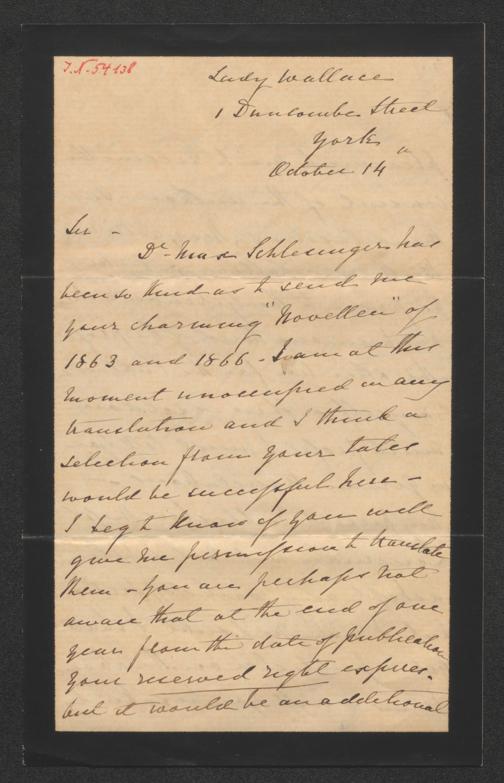 J.N. 54138
Lady Wallace
1 Duncombe Street
York
October 14
Sir -
Dr Max Schlesinger has
been so kind as to send me
your charming "Novellen" of
1863 and 1866 - I am at this
moment unoccupied in any
translation and I think a
selection from your tales
would be successful here -
I beg to know if you will
give me permission to translate
them - you are perhaps not
aware that at the end of one
year from the date of publication
your reserved right expires -
but it would be an additional